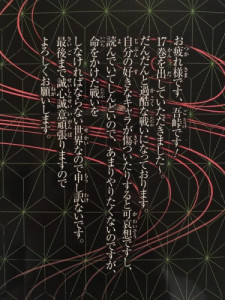 お疲れ様です、吾峠です。
17巻を出していただきました〜
だんだんと過酷な戦いになっております。
自分の好きなキャラが傷ついたりすると可哀想ですし、
読んでいてしんどいので、あまりやりたくないのですが、
命をかけた戦いを
しなければならない世界なので申し訳ないです。
最後まで誠心誠意頑張りますので
よろしくお願いします。